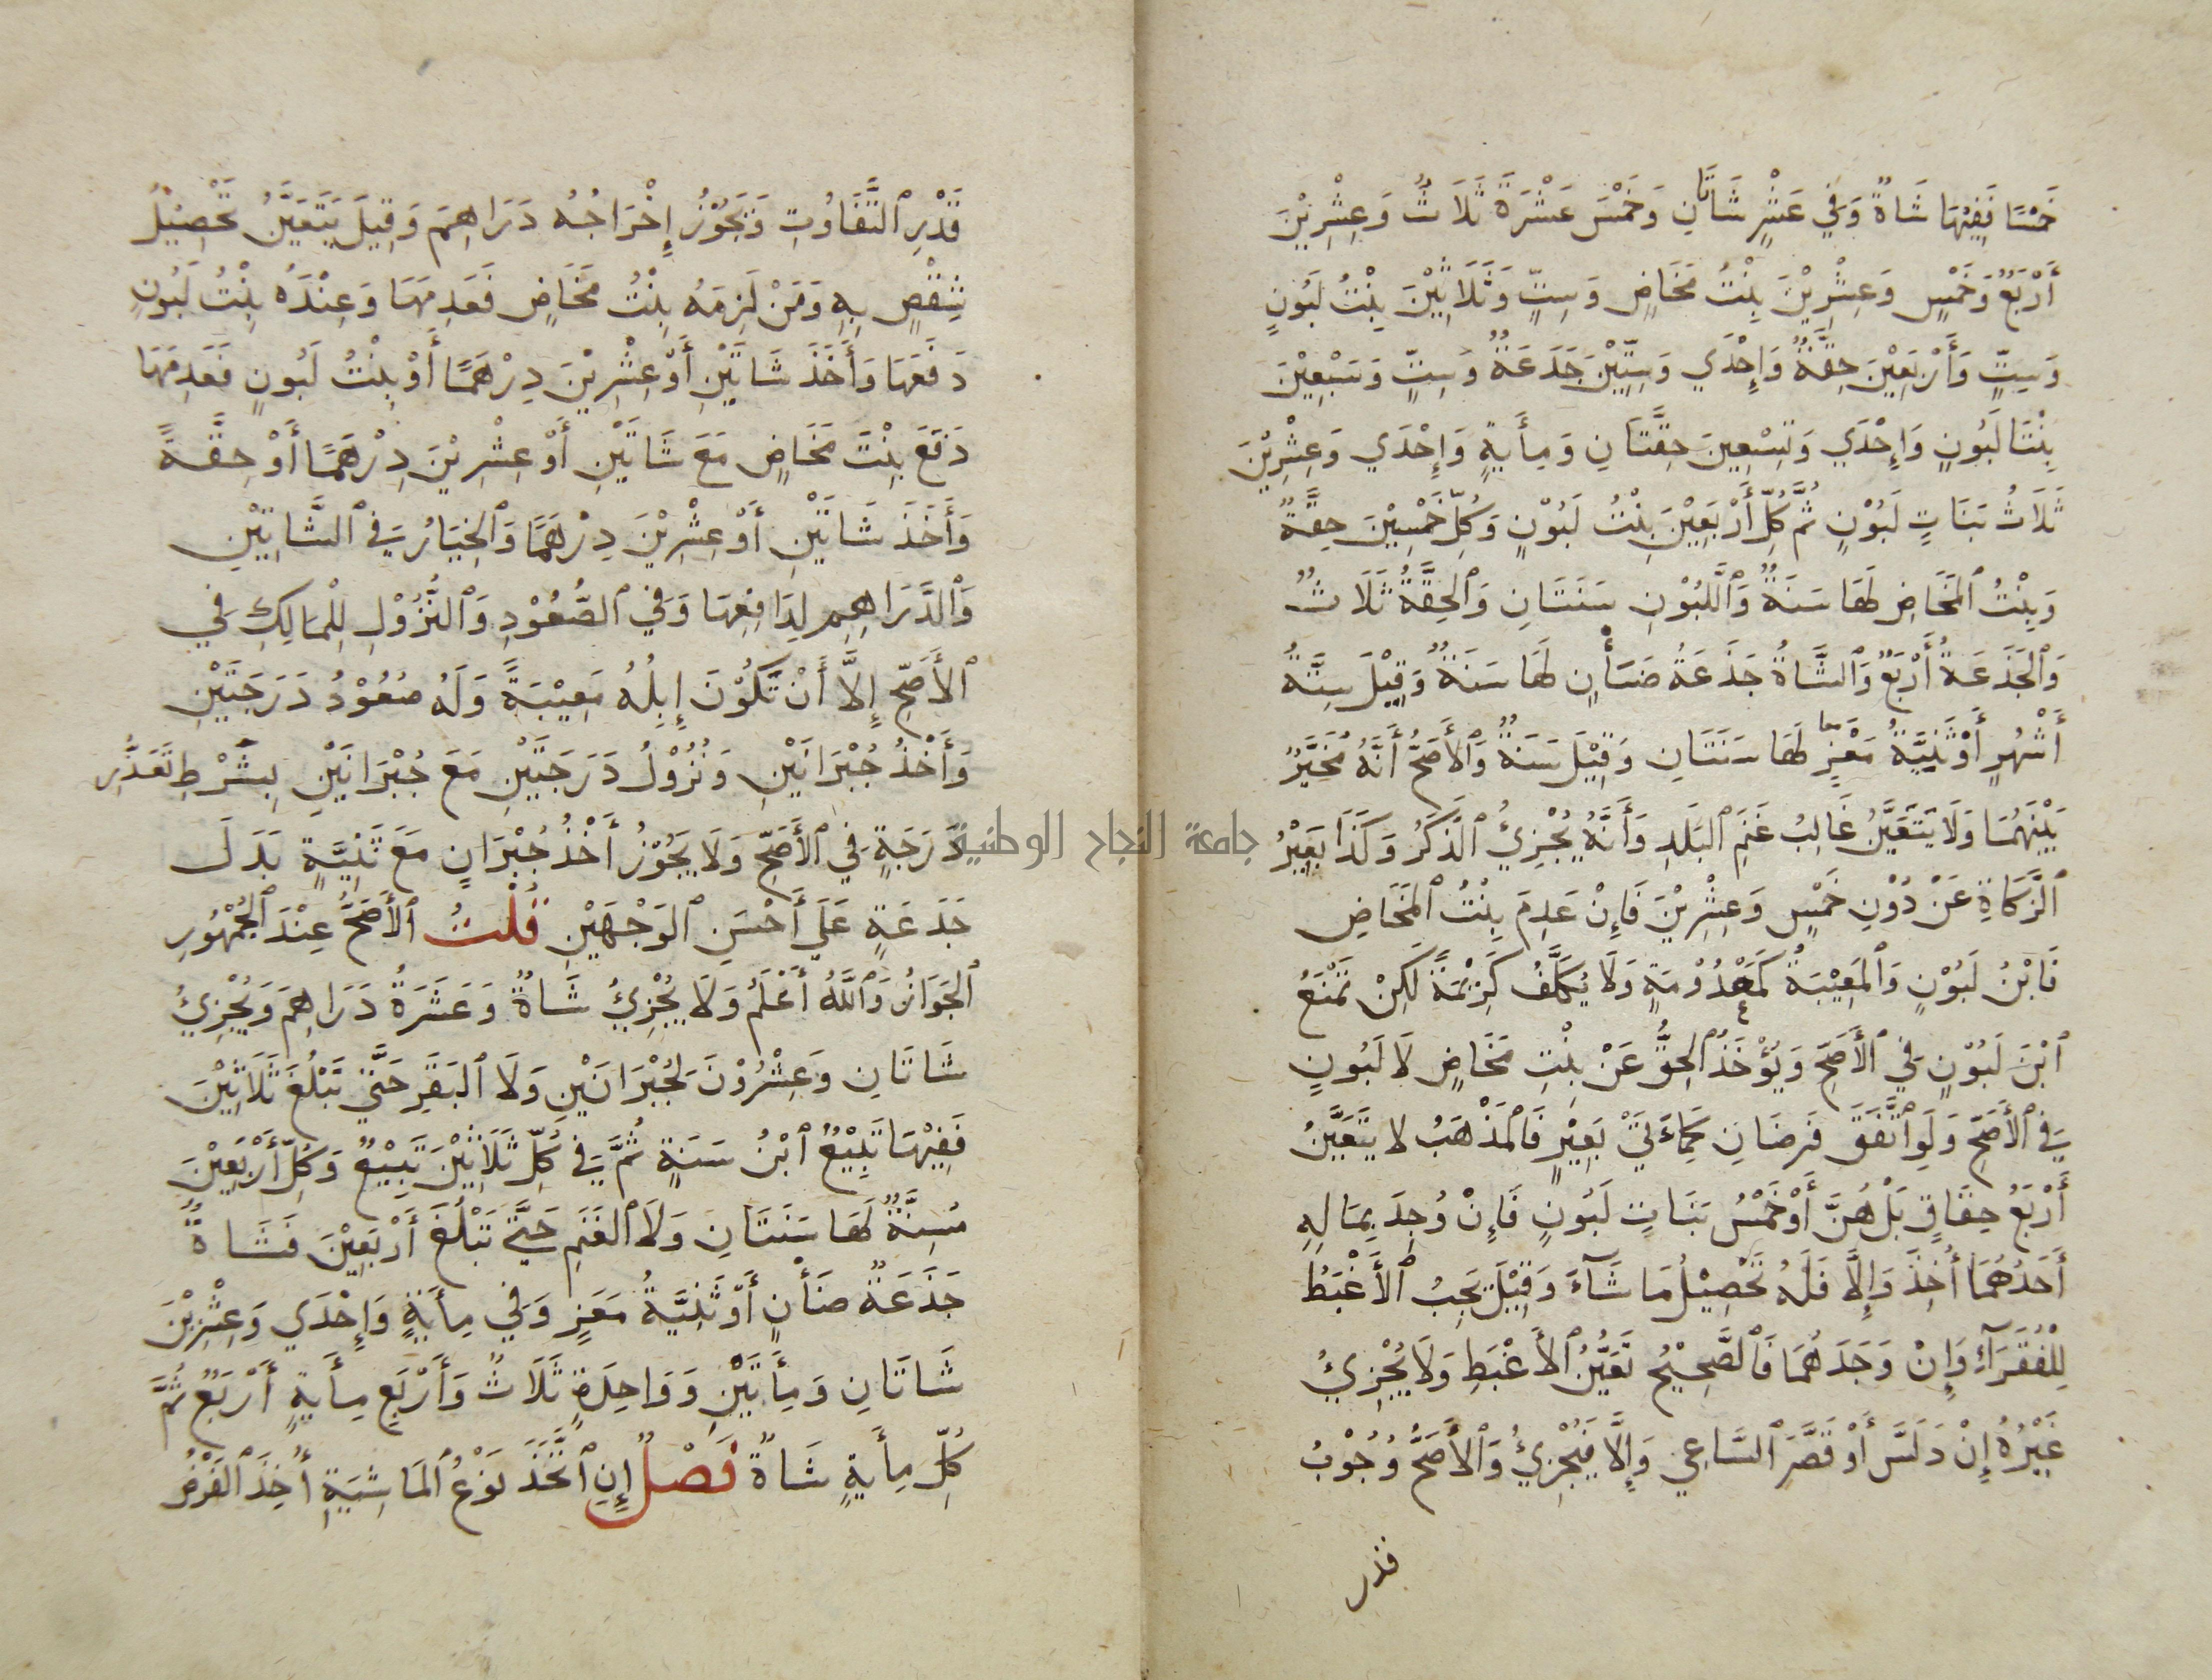 خَمْسًا فَفِيْهَا شَاةٌ وَفِي عَشْرٍ شَاتَانِ وَخَمْسَ عَشْرَةَ ثَلَاثٌ وَعِشْرِيْنَ
أَرْبَعٌ وَخَمْسٍ وَعِشْرِيْنَ بِنْتُ مَخَاضٍ وَسِتٍّ وَثَلَاثِيْنَ بِنْتُ لَبُونٍ
وَسِتٍّ وَأَرْبَعِيْنَ حِقَّةٌ وَإِحْدَي وَسِتِّيْنَ جَذَعَةٌ وَسِتٍّ وَسَبْعِيْنَ
بِنْتَا لَبُونٍ وَإِحْدَي وَتِسْعِينَ حِقَّتَانِ وَمِأَيةٍ وَإِحْدَي وَعِشْرِيْنَ
ثَلَاثُ بَنَاتِ لَبُوْنٍ ثُمَّ كُلِّ أَرْبَعِيْنَ بِنْتُ لَبُوْنٍ وَكُلِّ خَمْسِيْنَ حِقَّةٌ
وَبِنْتُ ٱلمَخَاضِ لَهَا سَنَةٌ وَٱللَّبُوْنِ سَنَتَانِ وَٱلحِقَّةُ ثَلَاثٌ
وَٱلجَذَعَةُ أَرْبَعٌ وَٱلشَّاةُ جَذَعَةُ ضَأْنٍ لَهَا سَنَةٌ وَقِيْلَ سِتَّةُ
أَشْهُرٍ أَوْ ثَنِيَّةُ مَعْزٍ لَهَا سَنَتَانِ وَقِيْلَ سَنَةٌ وَٱلأَصَحُّ أَنَّهُ مُخَيَّرٌ
بَيْنَهُمَا وَلَا يَتَعَيَّنُ غَالِبُ غَنَمِ ٱلبَلَدِ وَأَنَّهُ يُجْزِيُ ٱلذَّكَرُ وَكَذَا بَعِيْرُ
ٱلزَّكَاةِ عَنْ دُوْنِ خَمْسٍ وَعِشْرِيْنَ فَإِنْ عَدِمَ بِنْتُ ٱلمَخَاضِ
فَابْنُ لَبُوْنٍ وَٱلمَعِيْبَةُ كَمَعْدُوْمَةٍ وَلَا يُكَلَّفُ كَرِيْمَةً لَكِنْ تَمْنَعُ
ٱبْنَ لَبُوْنٍ فِي ٱلأَصَحِّ وَيُؤْخَذُ ٱلحِقُّ عَنْ بِنْتِ مَخَاضٍ لَا لَبُونٍ
فِي ٱلأَصَحِّ وَلَوِ ٱتَّفَقَ فَرضَانِ كَمِاءَتَيْ بَعِيْرٍ فَالْمَذْهَبُ لا يَتَعَيَّنُ
أَرْبَعُ حِقَاقٍ بَلْ هُنَّ أَوْ خَمْسُ بَنَاتِ لَبُونٍ فَإِنْ وُجِدَ بِمَالِهِ
أَحَدُهُمَا أُخِذَ وَإِلَّا فَلَهُ تَحْصِيْلُ مَا شَآءَ وَقِيْلَ يَجِبُ ٱلأَغْبَطُ
لِلْفُقَرَآءِ وَإِنْ وَجَدَهُمَا فَٱلصَّحِيْحُ تَعَيُّنُ ٱلأَغْبَطِ وَلَا يُجْزِيُ
غَيْرُهُ إِنْ دَلَسَ أَوْ قَصَّرَ ٱلسَّاعِي وَإِلَّا فَيُجْزِئُ وَٱلأَصَحُّ وُجُوْبُ
قدر
قَدْرِ ٱلتَّفَاوُتِ وَيَجُوْزُ إِخْرَاجُهُ دَرَاهِمَ وَقِيلَ يَتَعَيَّنُ تَحْصِيْلُ
شِقْصٍ بِهِ وَمَنْ لَزِمَهُ بِنْتُ مَخَاضٍ فَعَدِمَهَا وَعِنْدَهُ بِنْتُ لَبُونٍ
دَفَعَهَا وَأَخَذَ شَاتَيْنِ أَوْ عِشْرِيْنَ دِرْهَمًا أَوْ بِنْتُ لَبُونٍ فَعَدِمَهَا
دَفَعَ بِنْتَ مَخَاضٍ مَعَ شَاتَيْنِ أَوْ عِشْرِيْنَ دِرْهَمًا أَوْ حِقَّةً
وَأَخَذَ شَاتَيْنِ أَوْ عِشْرِيْنَ دِرْهَمًا وَٱلخِيَارُ فِي ٱلشَّاتَيْنِ
وَٱلدَّرَاهِمِ لِدَافِعِهَا وَفِي ٱلصُّعُوْدِ وَٱلنُّزُوْلِ لِلْمَالِكِ فِي
ٱلأَصَحِّ إِلَّا أَنْ تَكُوْنَ إِبِلُهُ مَعِيْبَةً وَلَهُ صُعُوْدُ دَرَجَتَيْنِ
وَأَخْذُ جُبْرَانَيْنِ وَنُزُوْلُ دَرَجَتَيْنِ مَعَ جُبْرَانَيْنِ بِشَرْطِ تَعَذُّرِ
دَرَجَةٍ فِي ٱلأَصَحِّ وَلَا يَجُوْزُ أَخْذُ جُبْرَانٍ مَعَ ثَنِيَّةٍ بَدَلَ
جَذَعَةٍ عَلَي أَحْسَنِ ٱلوَجْهَيْنِ قُلْتُ ٱلأَصَحُّ عِنْدَ ٱلجُمْهُورِ
ٱلجَوَازُ وَٱللَّهُ أَعْلَمُ وَلَا يُجْزِيُ شَاةٌ وَعَشَرَةُ دَرَاهِمَ وَيُجْزِيُ
شَاتَانِ وَعِشْرُوْنَ لِجُبْرَانَيْنِ وَلَا ٱلبَقَرِ حَتَّي تَبْلُغَ ثَلَاثِيْنَ
فَفِيْهَا تَبِيْعٌ ٱبْنُ سَنَةٍ ثُمَّ فِي كُلِّ ثَلَاثِيْنَ تَبِيْعٌ وَكُلِّ أَرْبَعِيْنَ
مُسِنَّةٌ لَهَا سَنَتَانِ وَلَا ٱلغَنَمِ حَتَّي تَبْلُغَ أَرْبَعِيْنَ فَشَاةٌ
جَذَعَةُ ضَأْنٍ أَوْ ثَنِيَّةُ مَعَزٍ وَفِي مِأَيَةٍ وَإِحْدَي وَعِشْرِيْنَ
شَاتَانِ وَمِأَتَيْنِ وَوَاحِدَةٍ ثَلَاثٌ وَأَرْبَعِ مِأَيةٍ أَرْبَعٌ ثُمَّ
كُلِّ مِأَيةٍ شَاةٌ فَصْلٌ إِنِ ٱتَّخَذَ نَوْعُ ٱلمَاشِيَةِ أُخِذَ ٱلفَرْضُ
جامعة النجاح الوطنية